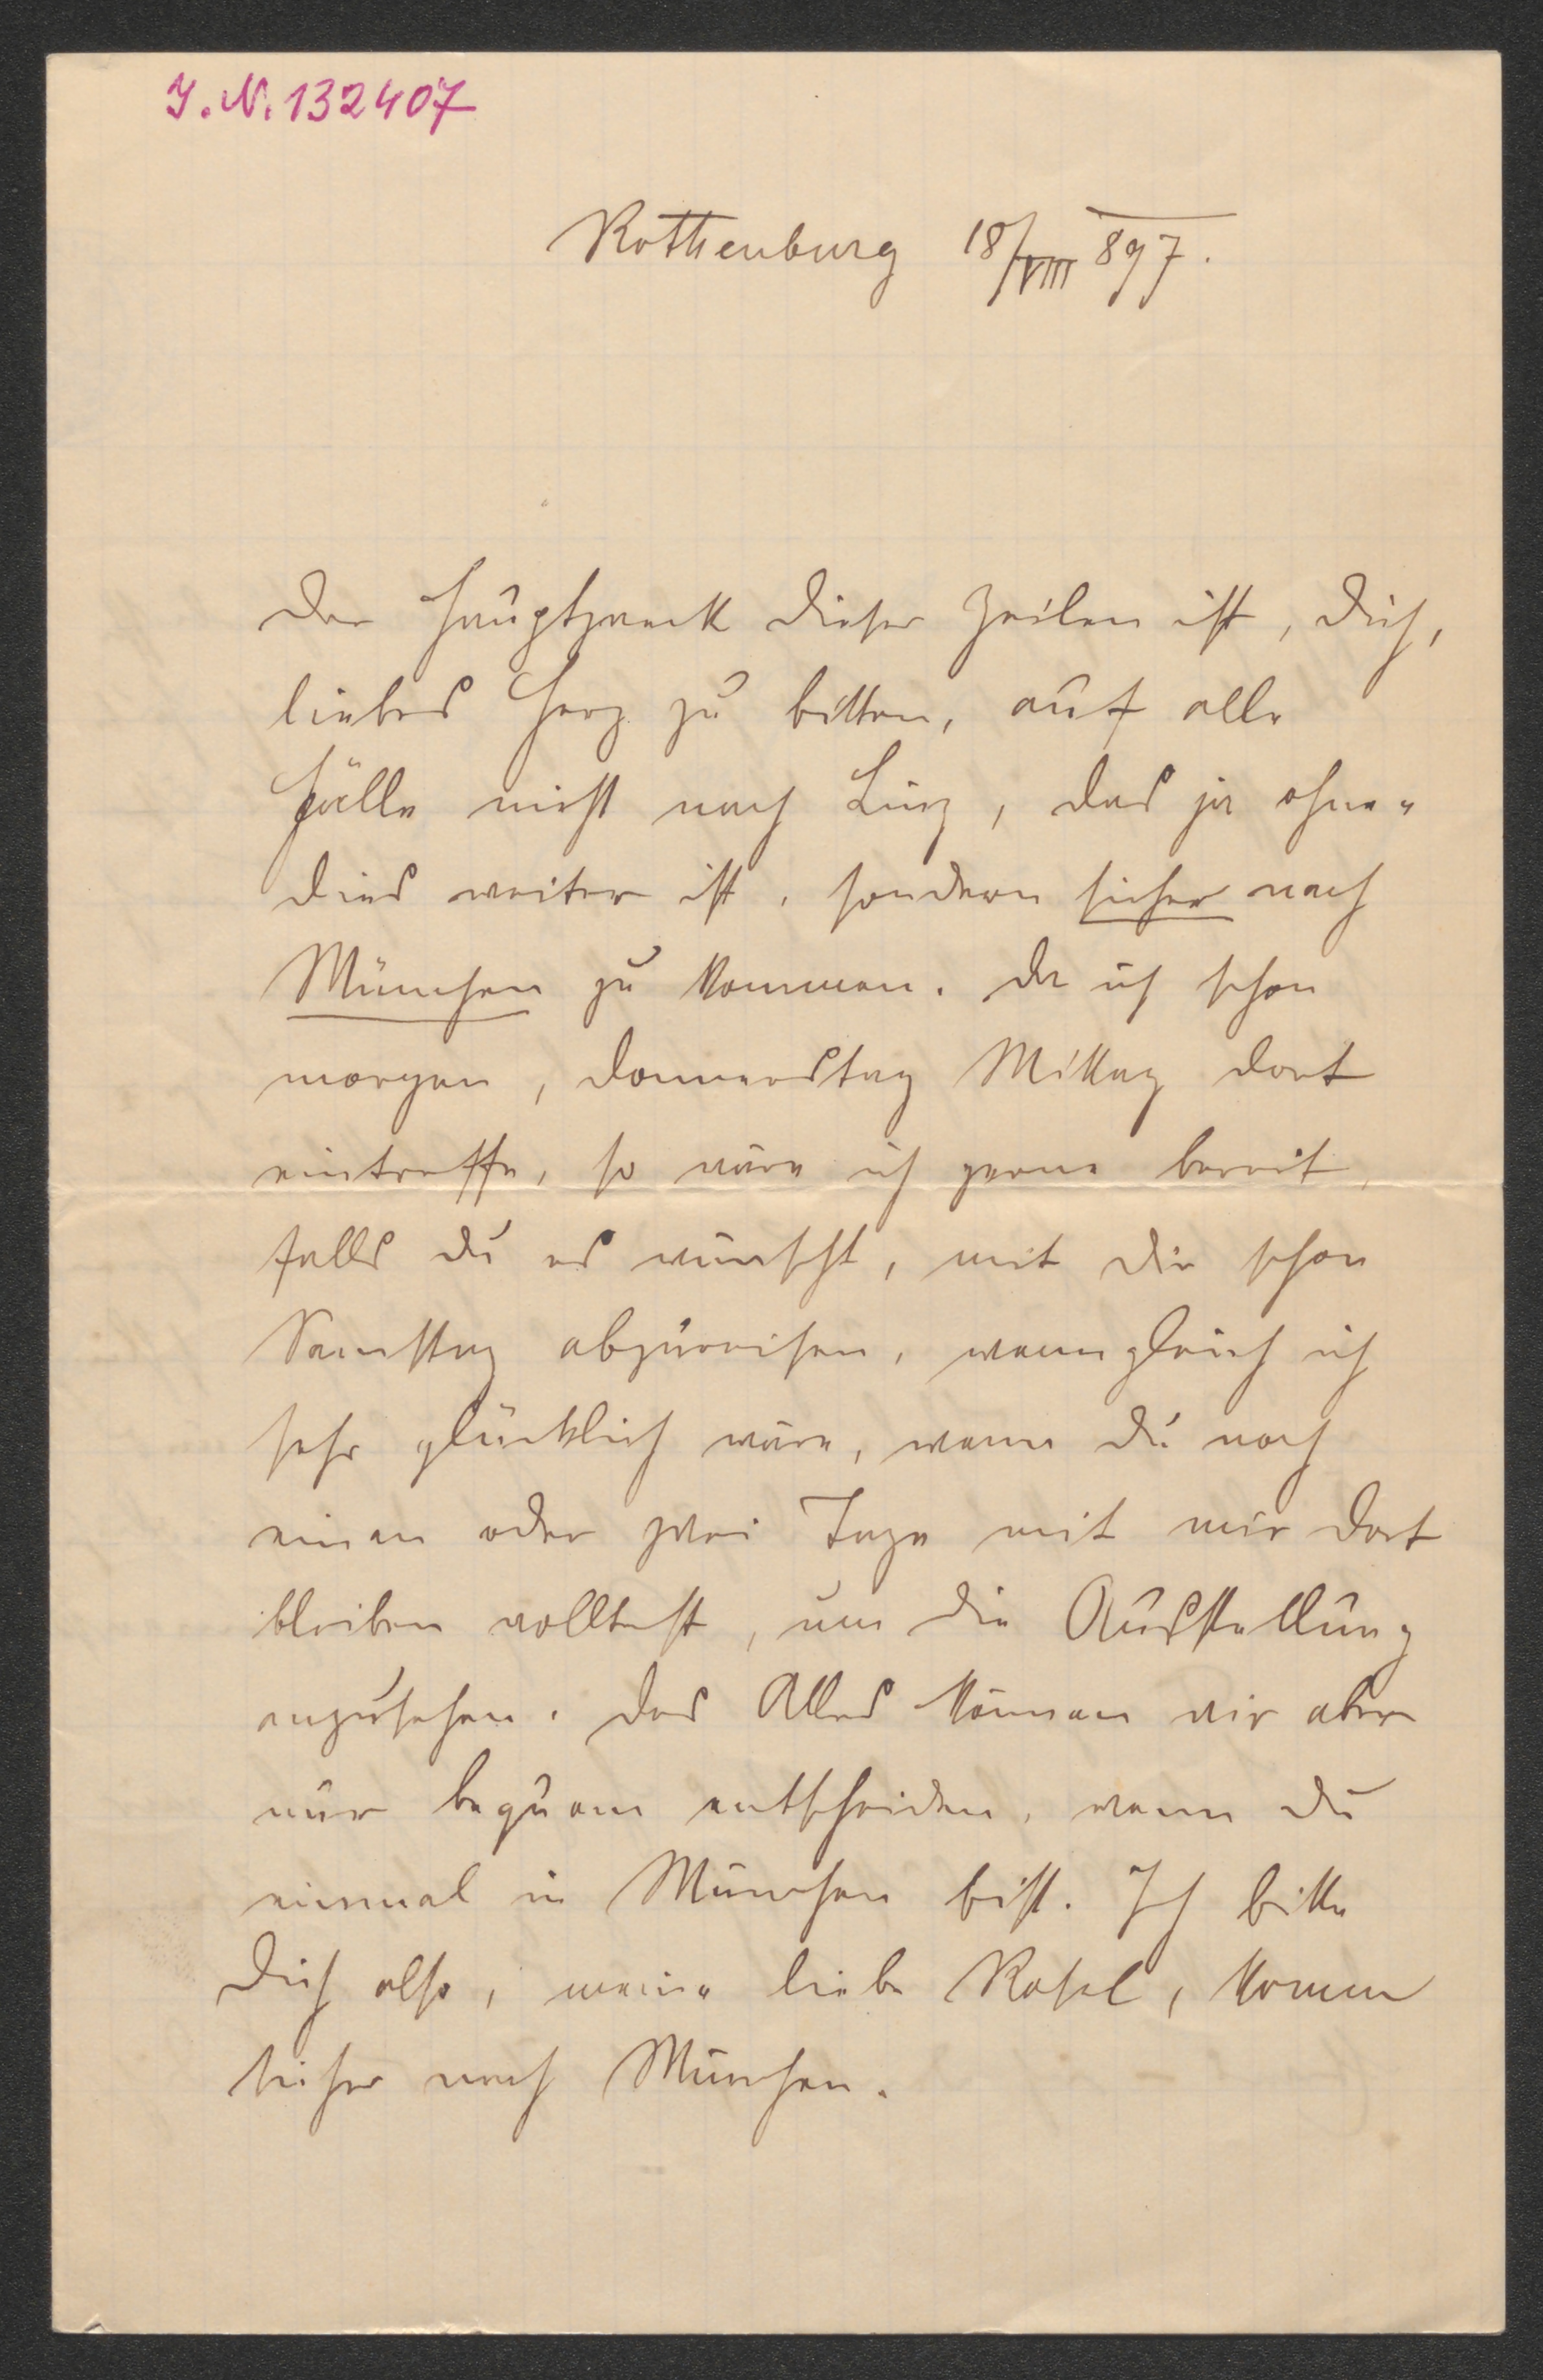 J. N. 132407
Rothenburg 18/VIII 897.
Der Hauptzweck dieser Zeilen ist, Dich,
liebes Herz zu bitten, auf alle
Fälle nicht nach Linz, das ja ohne-
dies weiter ist, sondern sicher nach
München zu kommen. Da ich schon
morgen, Donnerstag Mittag dort
eintreffe, so wäre ich gerne bereit,
falls Du es wünscht, mit Dir schon
Samstag abzureisen, wenngleich ich
sehr glücklich wäre, wenn Du noch
einen oder zwei Tage mit mir dort
bleiben wolltest, um die Ausstellung
anzusehen. Das Alles können wir aber
nur bequem entscheiden, wenn Du
einmal in München bist. Ich bitte
Dich also, meine liebe Rosel, komm
sicher nach München.